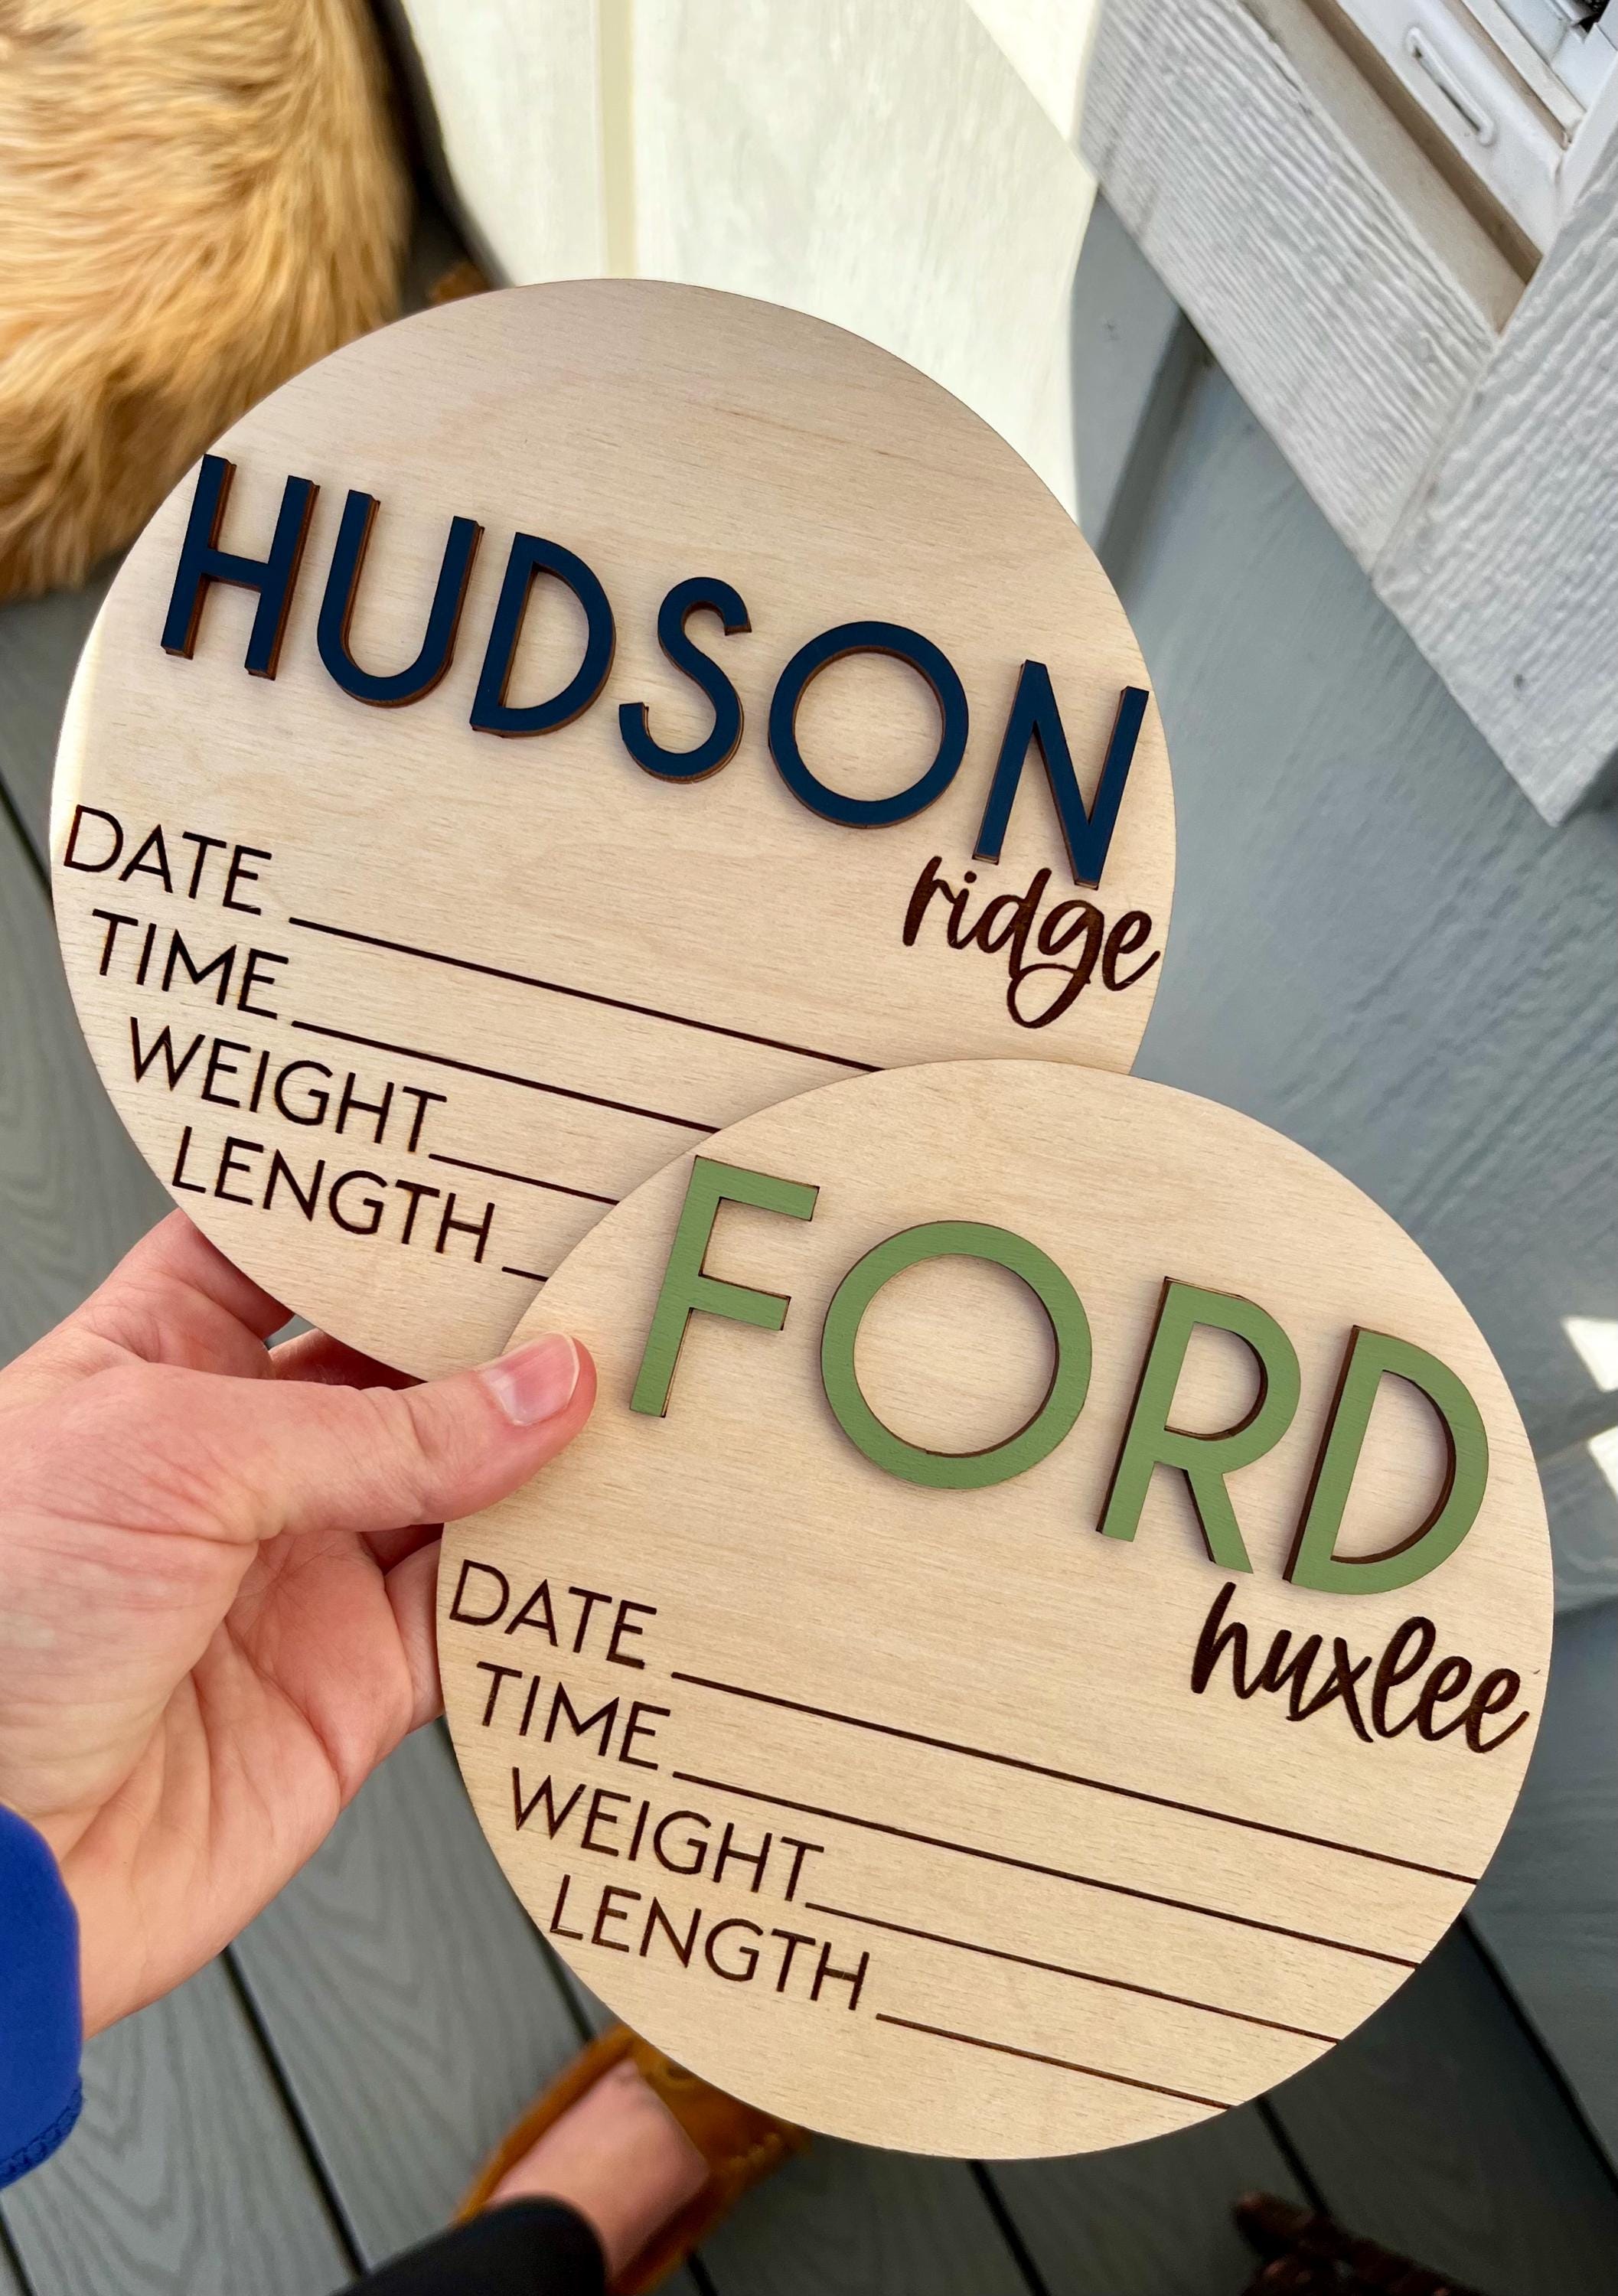 HUDSON
ridge
DATE
TIME
WEIGHT
LENGTH
FORD
huxlee
DATE
TIME
WEIGHT
LENGTH